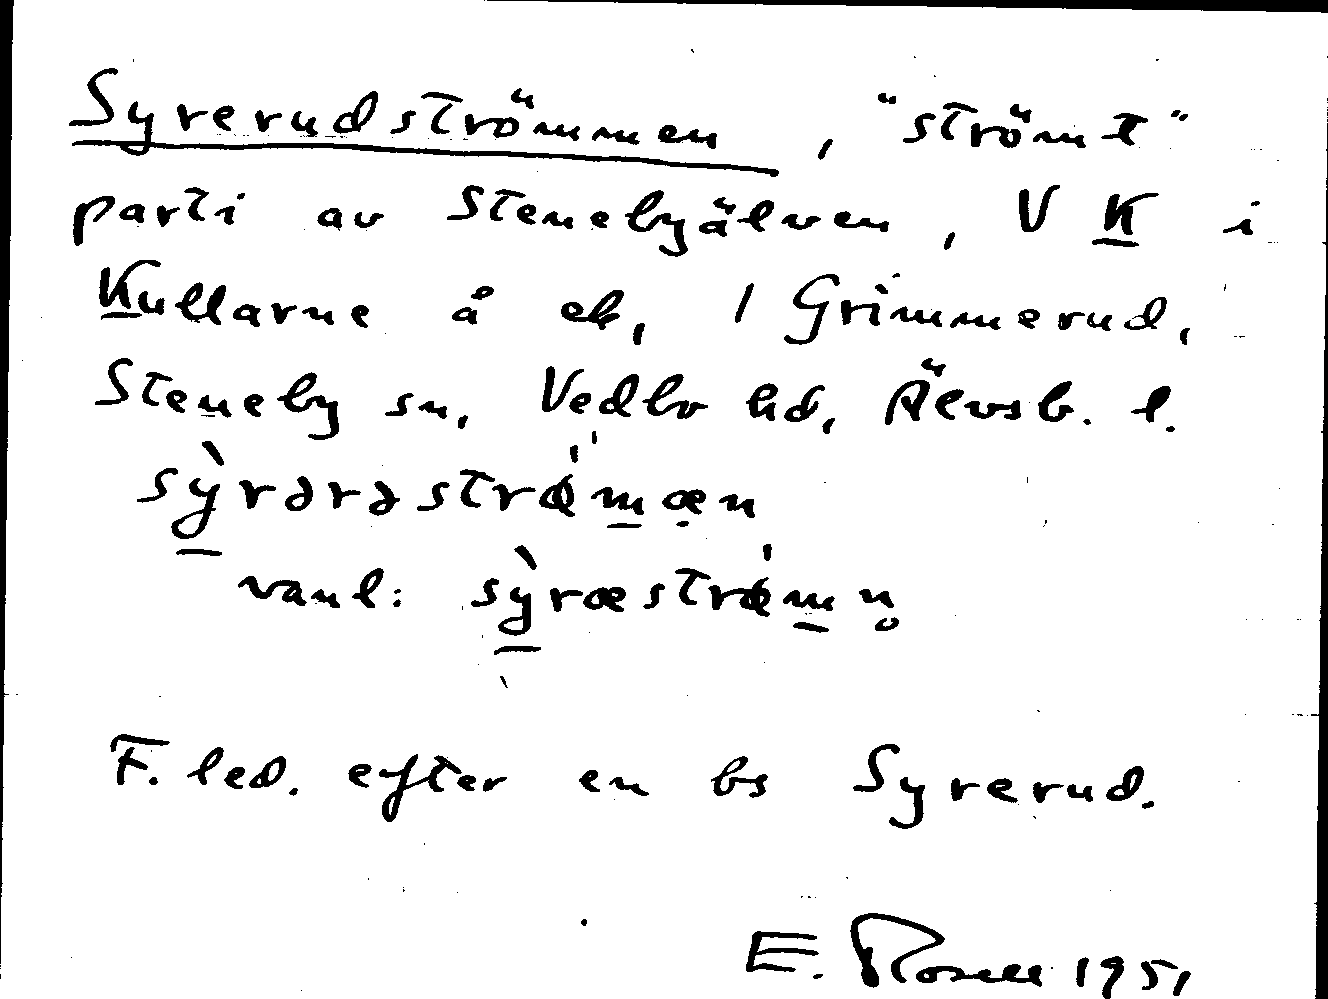 Syrerudströmmen, "strömt"
parti av Stenebyälven, V K i
Kullarne å ek, 1 Grimmerud,
Steneby sn, Vedbo hd, Älvsb. l.
sỳrərəstrǿmæn
vanl: sỳræstrǿmn̥
F. led. efter en bs Syrerud.
E. Rosell 1951